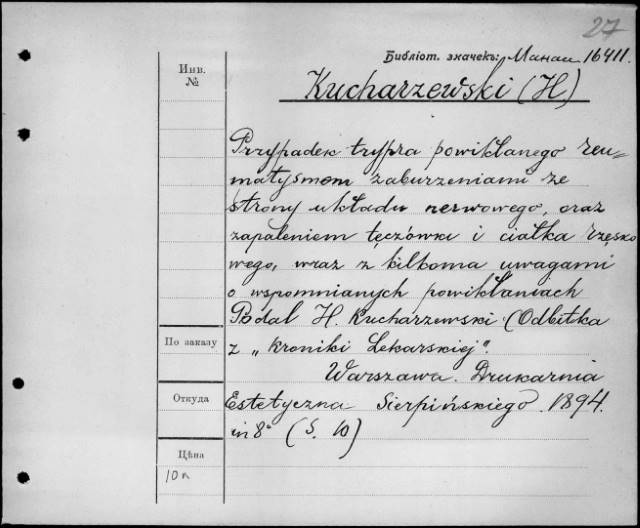 27
Библіот. значекъ: Манаи 16411.
Инв.
№
Kucharzewski (H)
Przypadek trypra powikłanego reu-
matyzmem zaburzeniami ze
strony układu nerwowego, oraz
zapaleniem tęczówki i ciałka rzęsko
wego, wraz z kilkoma uwagami
o wspomnianych powikłaniach
Podał H. Kucharzewski (Odbitka
По заказу
z „Kroniki Lekarskiej".
Warszawa. Drukarnia
Откуда
Estetyczna Sierpińskiego. 1894.
in 8° (S. 10)
Цѣна
10 к